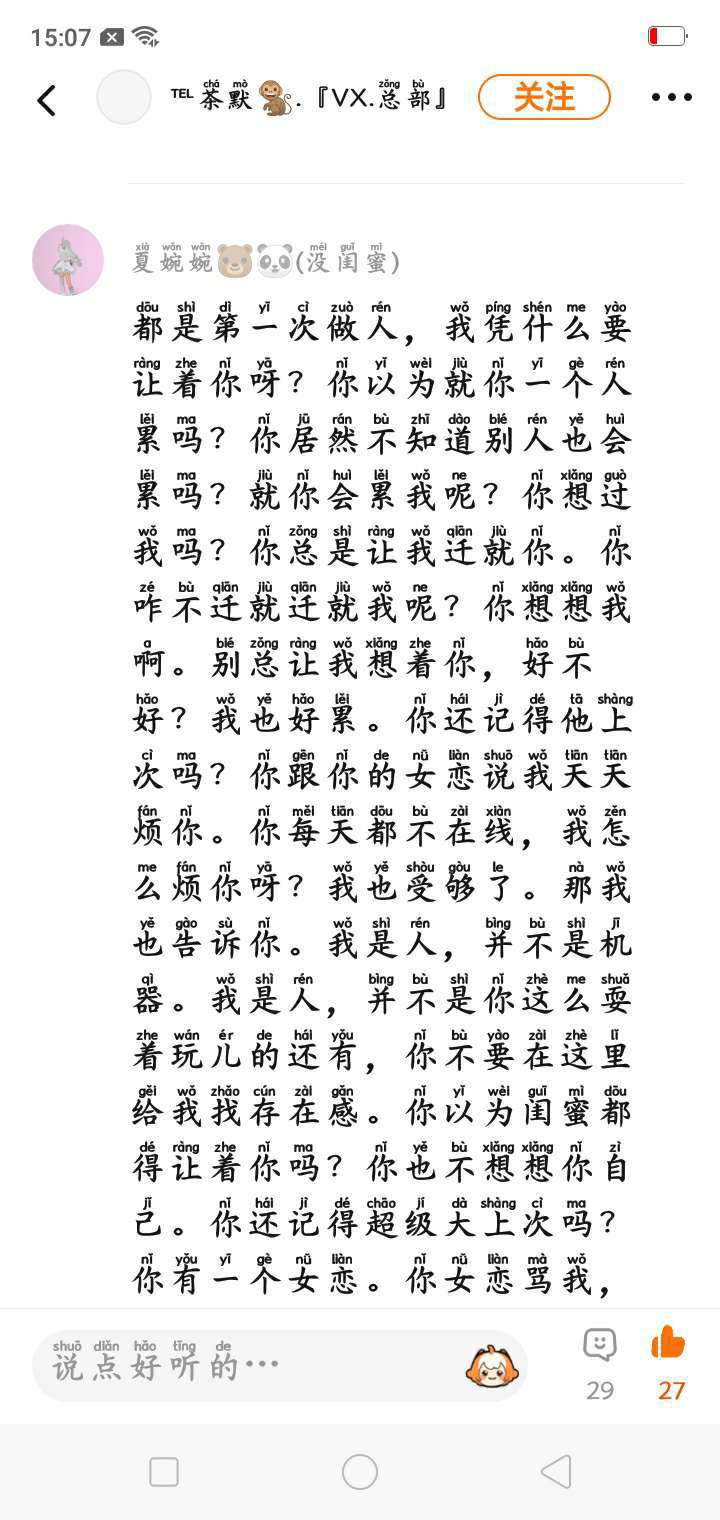 15:07
TEL 茶默🐒.『VX.总部』 关注
夏婉婉🐻🐼(没闺蜜)
都是第一次做人，我凭什么要
让着你呀？你以为就你一个人
累吗？你居然不知道别人也会
累吗？就你会累我呢？你想过
我吗？你总是让我迁就你。你
咋不迁就迁就我呢？你想想我
啊。别总让我想着你，好不
好？我也好累。你还记得他上
次吗？你跟你的女恋说我天天
烦你。你每天都不在线，我怎
么烦你呀？我也受够了。那我
也告诉你。我是人，并不是机
器。我是人，并不是你这么耍
着玩儿的还有，你不要在这里
给我找存在感。你以为闺蜜都
得让着你吗？你也不想想你自
己。你还记得超级大上次吗？
你有一个女恋。你女恋骂我，
说点好听的…
29 27